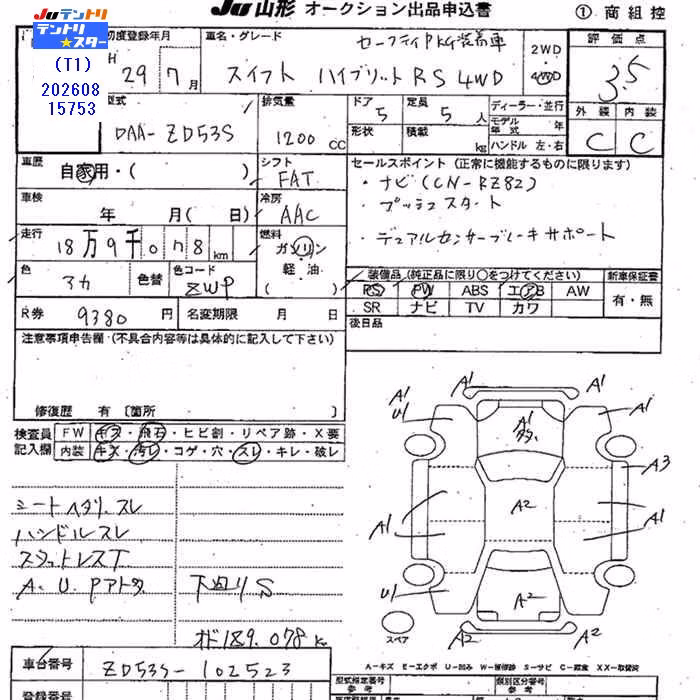 Ju 山形 オークション出品申込書 ① 商組控
Ju テントリ
テントリ★スター
(T1)
202608
15753
初度登録年月
H 29年 7月
車名・グレード
セーフティPkg装着車
スイフト ハイブリット RS 4WD
2WD
・
4WD
評価点
3.5
外装 内装
C C
型式
DAA- ZD53S
排気量
1200 CC
ドア 5
定員 5人
形状
積載 kg
ディーラー・並行
モデル年式 年
ハンドル 左・右
車歴
自家用・( )
シフト
FAT
車検
年 月(日)
冷房
AAC
走行
18万9千078km
燃料
ガソリン
軽油
( )
色
マカ 色替
色コード
ZWP
セールスポイント(正常に機能するものに限ります)
・ナビ(CN-RZ82)
・プッシュスタート
・デュアルセンサーブレーキサポート
装備品(純正品に限り○をつけてください)
PS PW ABS エアB AW
SR ナビ TV カワ
新車保証書
有・無
後日品
R券 9380円
名変期限 月 日
注意事項申告欄・(不具合内容等は具体的に記入して下さい)
修復歴 有 〔箇所 〕
検査員記入欄
FW キズ・飛石・ヒビ割・リペア跡・X要
内装 キズ・汚レ・コゲ・穴・スレ・キレ・破レ
シートヘタリ、スレ
ハンドルスレ
スタットレスT
A、U、Pアト多
下廻りS
オド189.078k
A1 A1
A1 U1 A1
A1 多
A3
A2
A1 A1 A1
U1 A2 A1
A2 A2
スペア
A-キズ E-エクボ U-凹み W-補修跡 S-サビ C-腐食 XX-取替済
車台番号
ZD53S-102523
登録番号
型式指定番号
参考
類別区分番号
参考